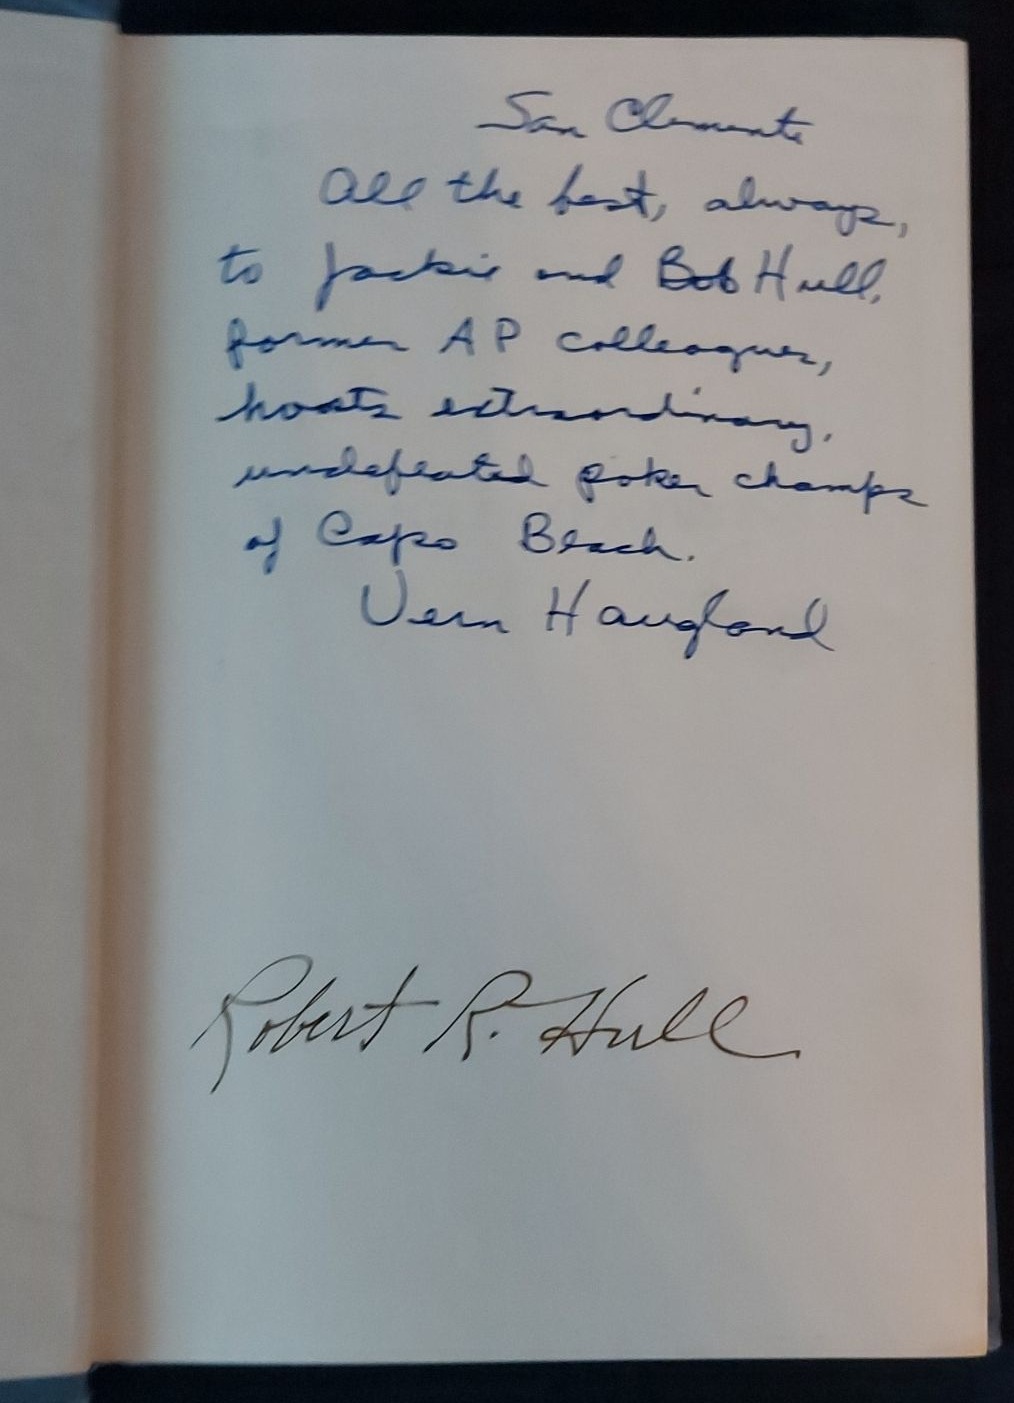 San Clemente
All the best, always,
to Jackie and Bob Hull,
former AP colleagues,
hosts extraordinary,
undefeated poker champs
of Capo Beach.
Vern Haugland
Robert R. Hull